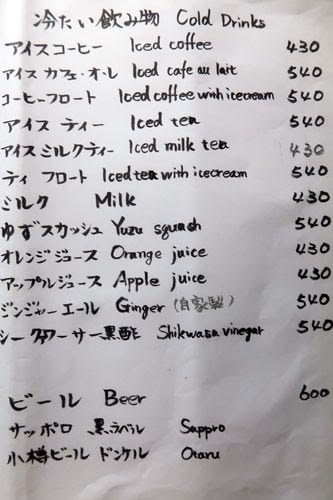 冷たい飲み物 Cold Drinks
アイスコーヒー Iced coffee 430
アイスカフェ・オ・レ Iced cafe au lait 540
コーヒーフロート Iced coffee with icecream 540
アイス ティー Iced tea 540
アイスミルクティー Iced milk tea 430
ティ フロート Iced tea with icecream 540
ミルク Milk 430
ゆずスカッシュ Yuzu squash 540
オレンジジュース Orange juice 430
アップルジュース Apple juice 430
ジンジャーエール Ginger (自家製) 540
シークワーサー黒酢 Shikwasa vinegar 540
ビール Beer 600
サッポロ 黒ラベル Sappro
小樽ビール ドンケル Otaru